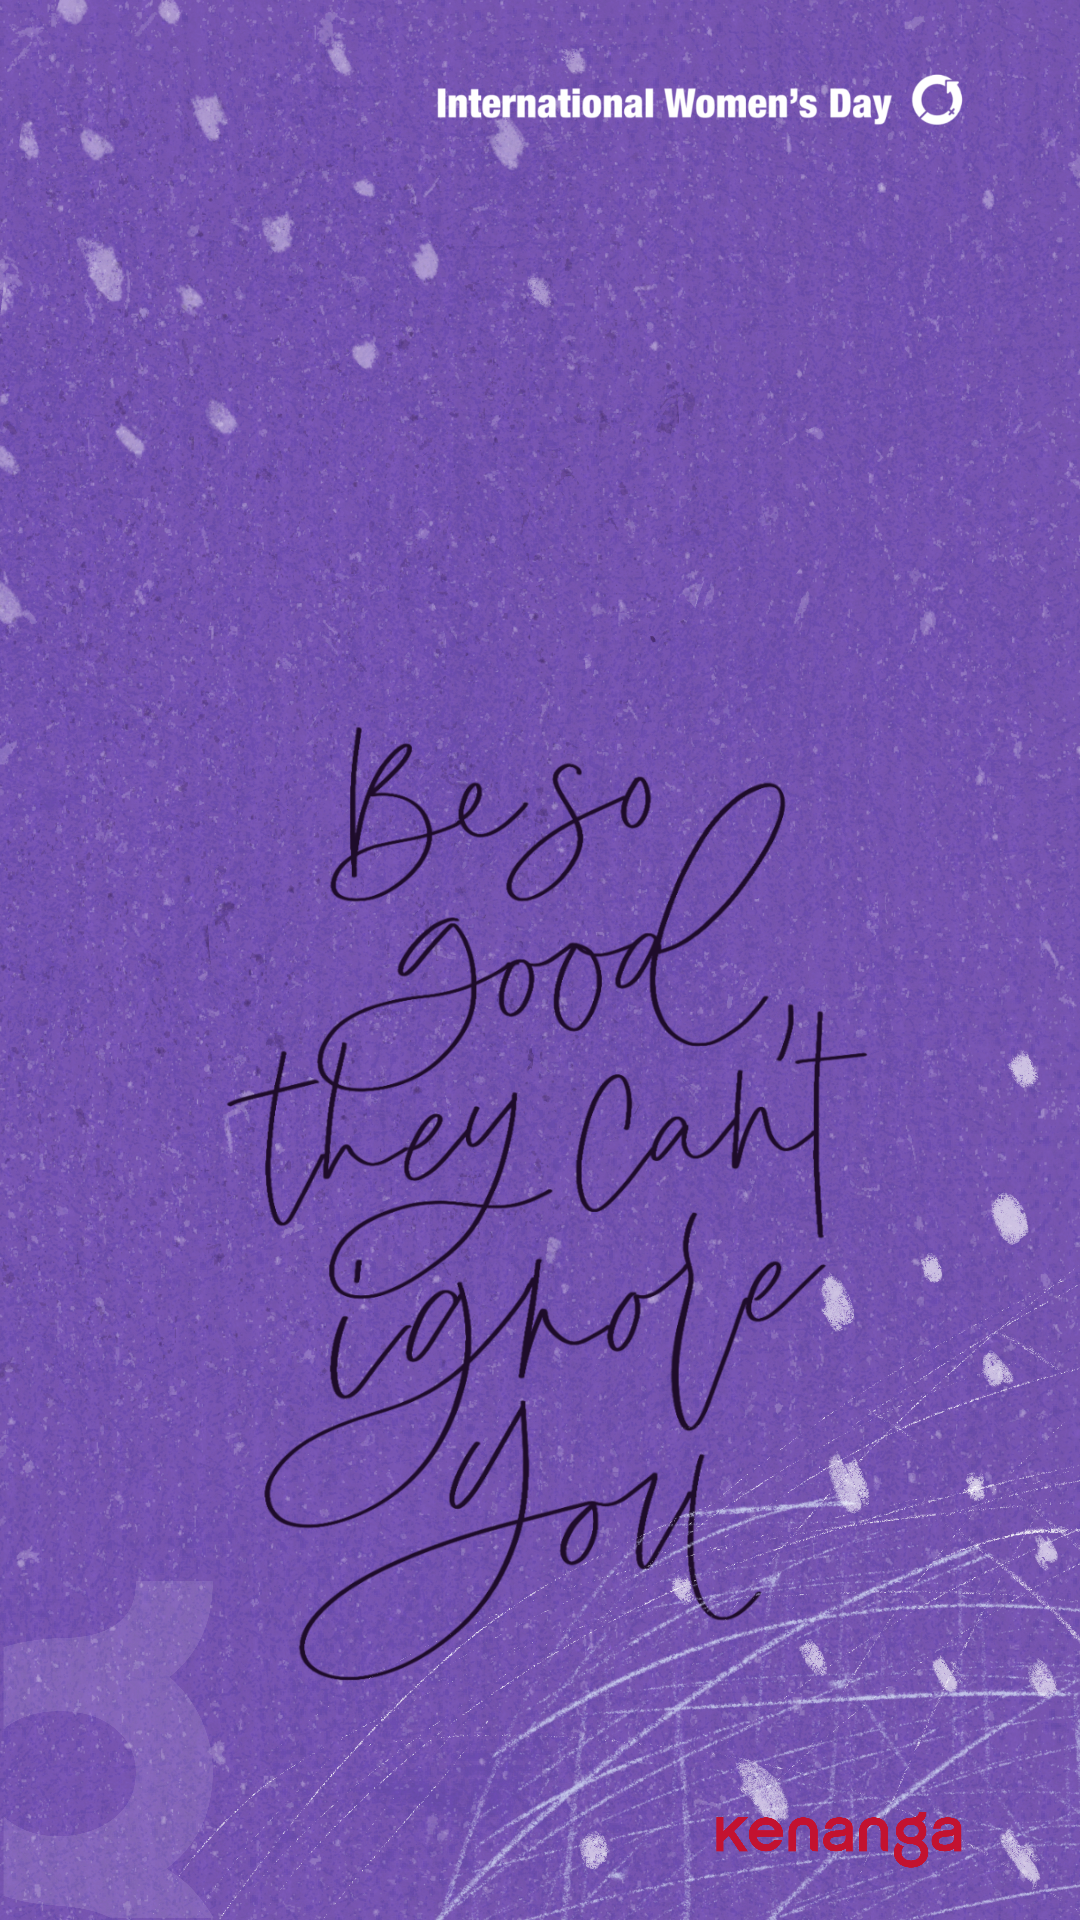 International Women's Day
Be so
good,
they can't
ignore
you
kenanga